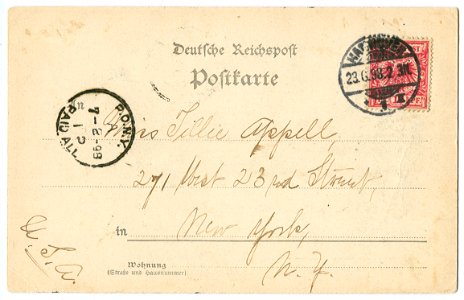 Deutsche Reichspost
Postkarte
HANNOVER
23.6.98. 2-3N.
1
P.O.N.Y.
7-8-98
PAID ALL
Miss Tillie Appell,
271 West 23rd Street,
in New York,
N.Y.
U.S.A.
Wohnung
(Straße und Hausnummer)